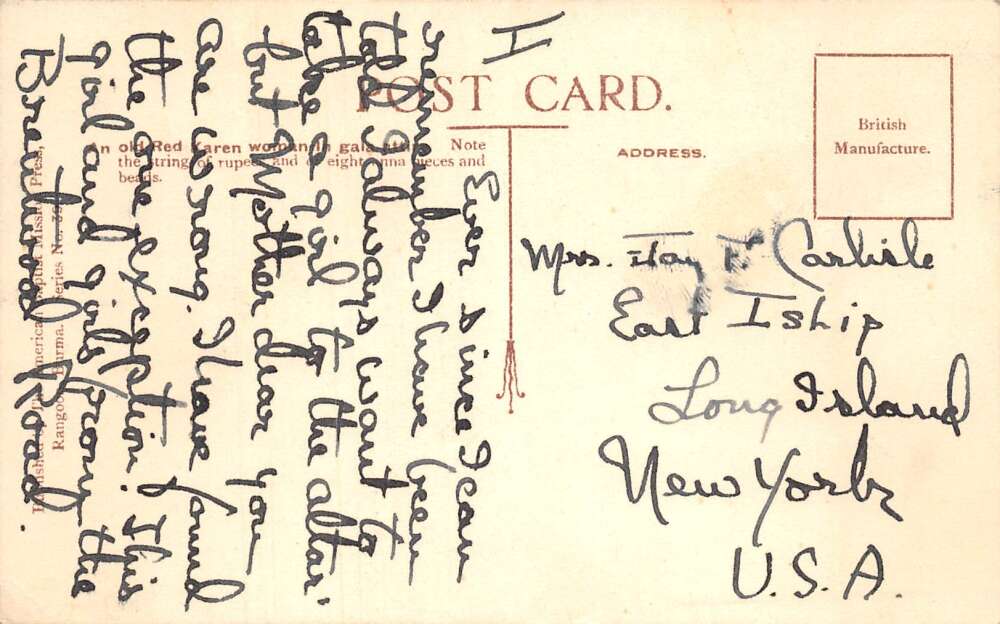 POST CARD.
An old Red Karen woman in gala attire. Note
the string of rupees and of eight anna pieces and
beads.
ADDRESS.
British
Manufacture.
Published by The American Baptist Mission Press,
Rangoon, Burma. Series No.
I
Ever since I can
remember I have been
told "always want to
take a girl to the altar"
but Mother dear you
are wrong. I have found
the one exception. This
girl and girls from the
Breatwood Road.
Mrs. Jay F. Carlisle
East Islip
Long Island
New York
U.S.A.